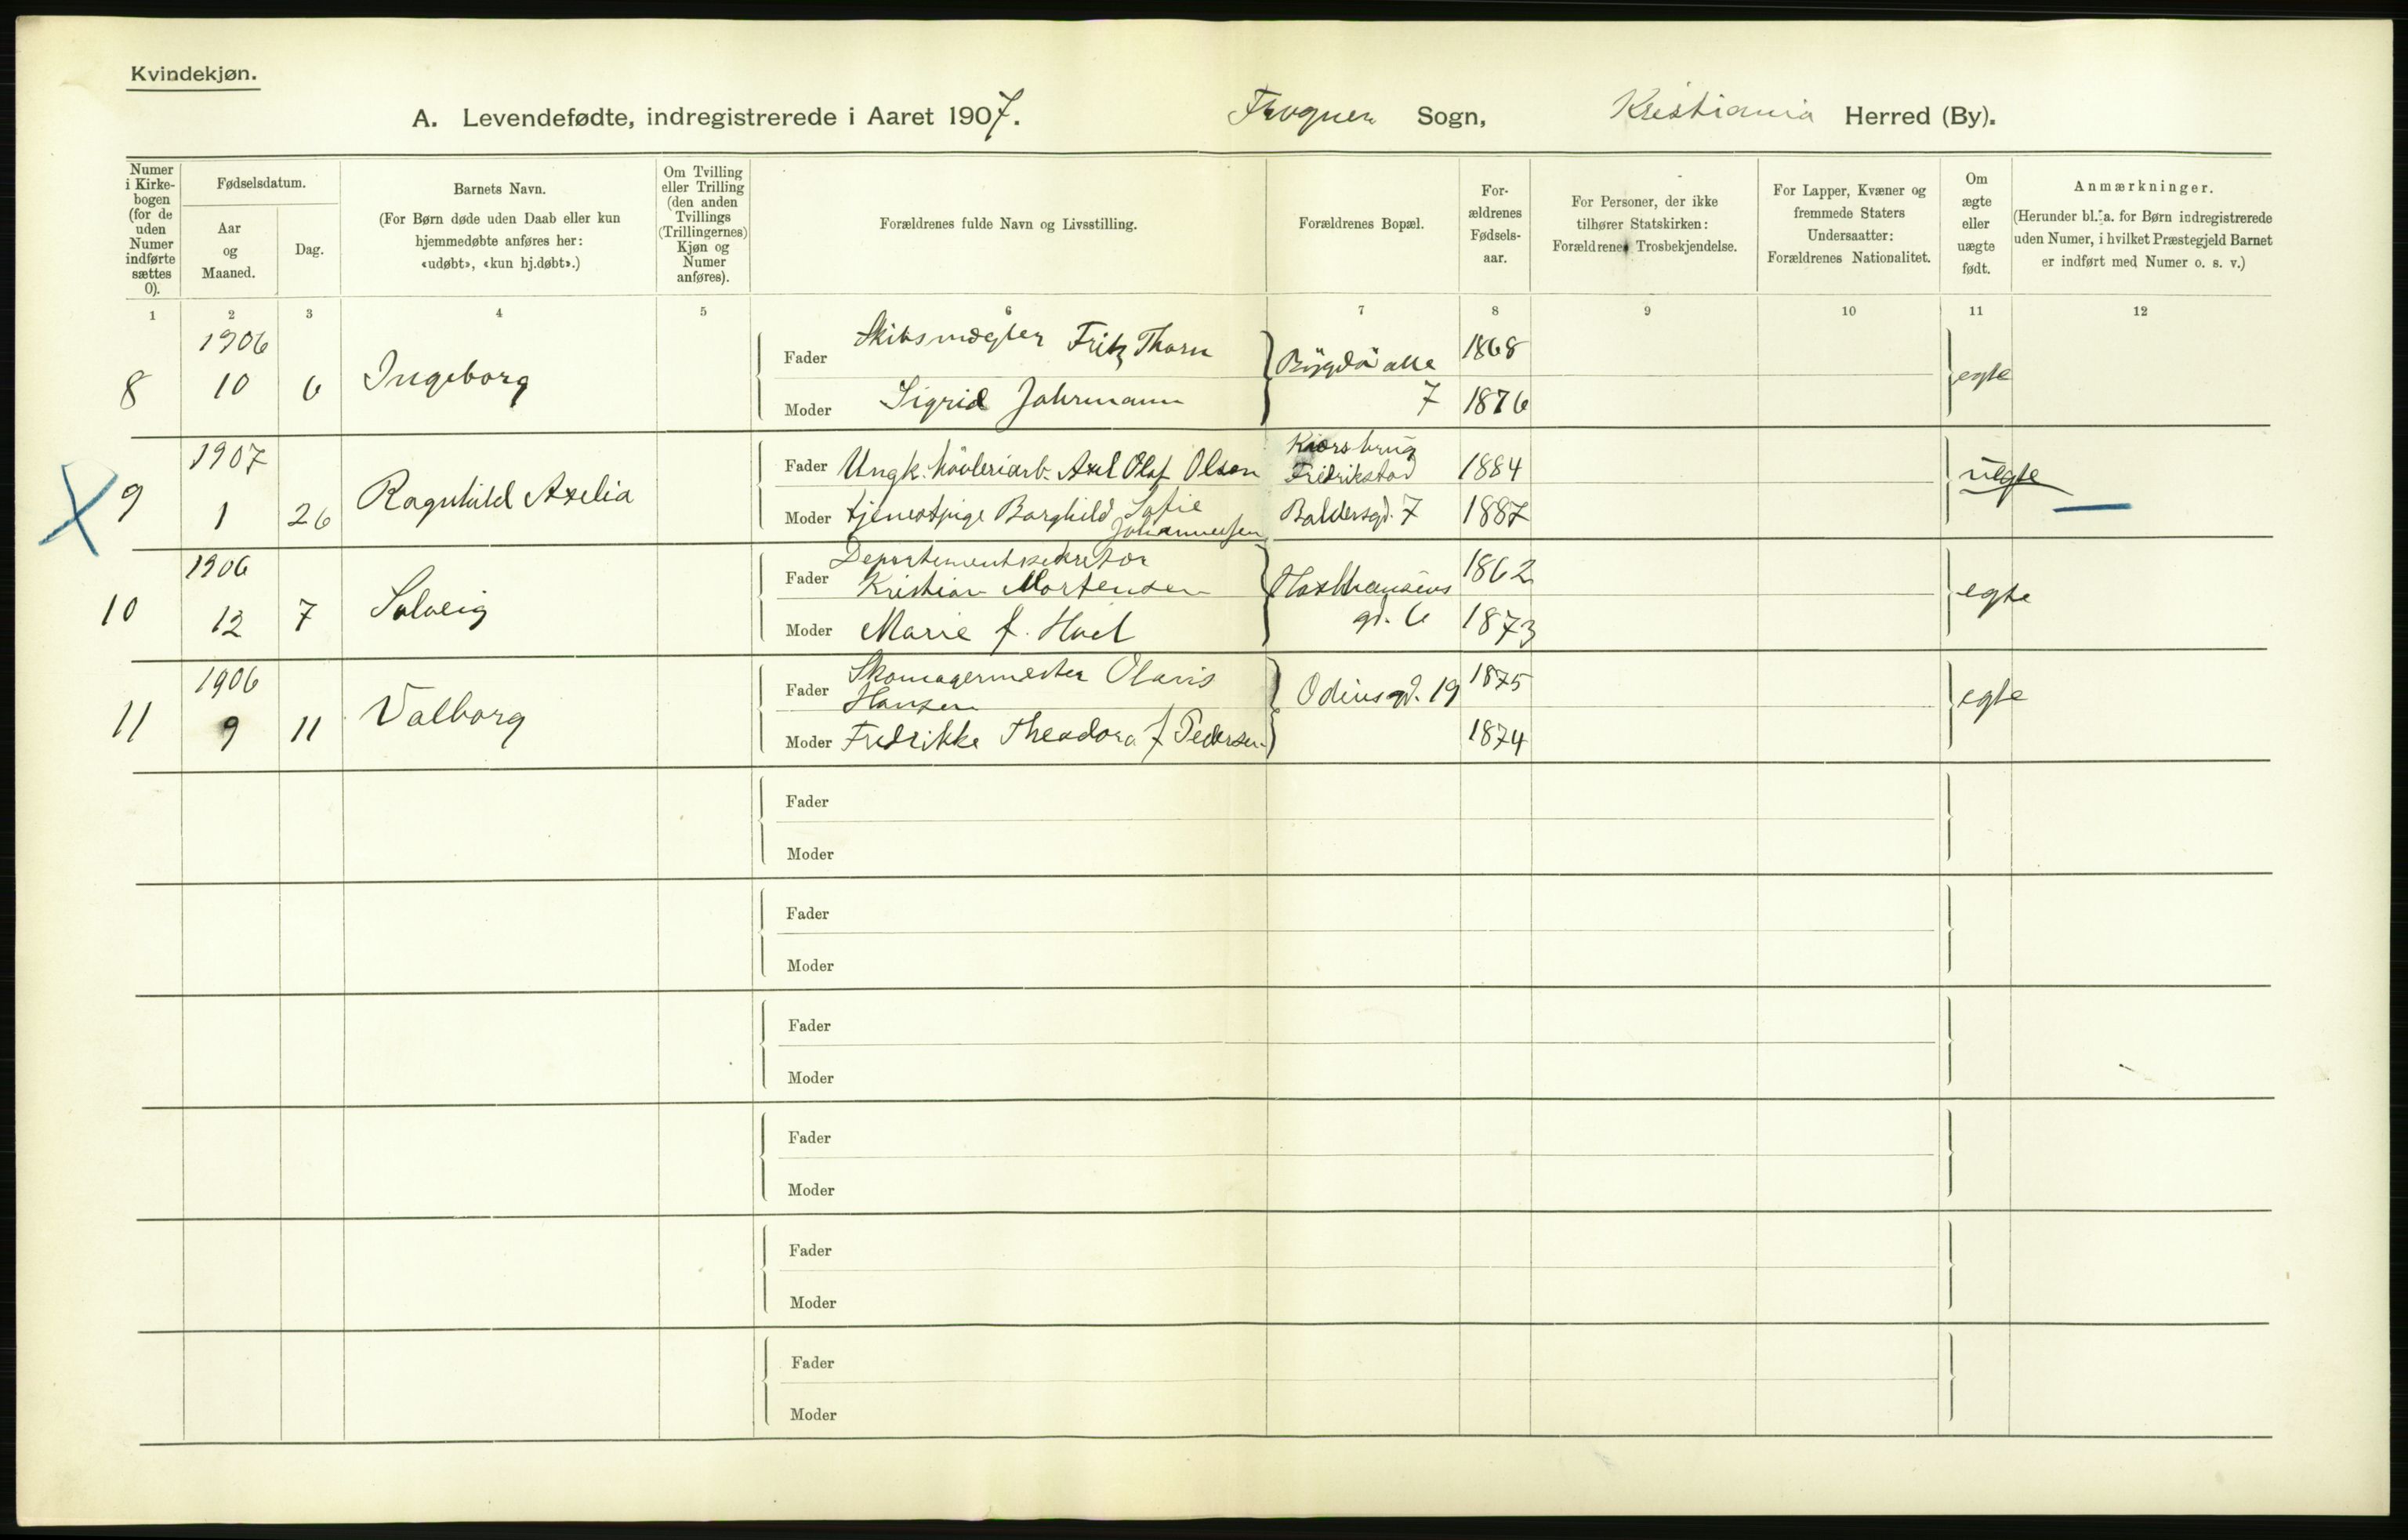 Kvindekjøn.
A. Levendefødte, indregistrerede i Aaret 1907. Frogner Sogn, Kristiania Herred (By).
Numer i Kirke- bogen (for de uden Numer indførte sættes 0).
Fødselsdatum.
Aar og Maaned.
Dag.
Barnets Navn.
(For Børn døde uden Daab eller kun hjemmedøbte anføres her: «udøbt», «kun hj.døbt».)
Om Tvilling eller Trilling (den anden Tvillings (Trillingernes) Kjøn og Numer anføres).
Forældrenes fulde Navn og Livsstilling.
Forældrenes Bopæl.
For- ældrenes Fødsels- aar.
For Personer, der ikke tilhører Statskirken: Forældrenes Trosbekjendelse.
For Lapper, Kvæner og fremmede Staters Undersaatter: Forældrenes Nationalitet.
Om ægte eller uægte født.
Anmærkninger.
(Herunder bl. a. for Børn indregistrerede uden Numer, i hvilket Præstegjeld Barnet er indført med Numer o. s. v.)
1 2 3 4 5 6 7 8 9 10 11 12
8 1906 10 6 Ingeborg
Fader Skibsmægler Fritz Thorn Bygdö alle 1868 egte
Moder Sigrid Jahrmann 7 1876
9 1907 1 26 Ragnhild Axelia
Fader Ungk. høvleriarb. Axel Olaf Olsen Fredrikstad 1884 uegte
Moder tjenestpige Borghild Sofie Johannessen Baldersgd. 7 1887
10 1906 12 7 Solveig
Fader Departementssekretær Kristian Mortensen gd. 6 1862 egte
Moder Marie f. Hoel 1873
11 1906 9 11 Valborg
Fader Skomagermester Olavis Hansen Odinsgd. 19 1875 egte
Moder Fredrikke Theodora f Pedersen 1874
Fader
Moder
Fader
Moder
Fader
Moder
Fader
Moder
Fader
Moder
Fader
Moder